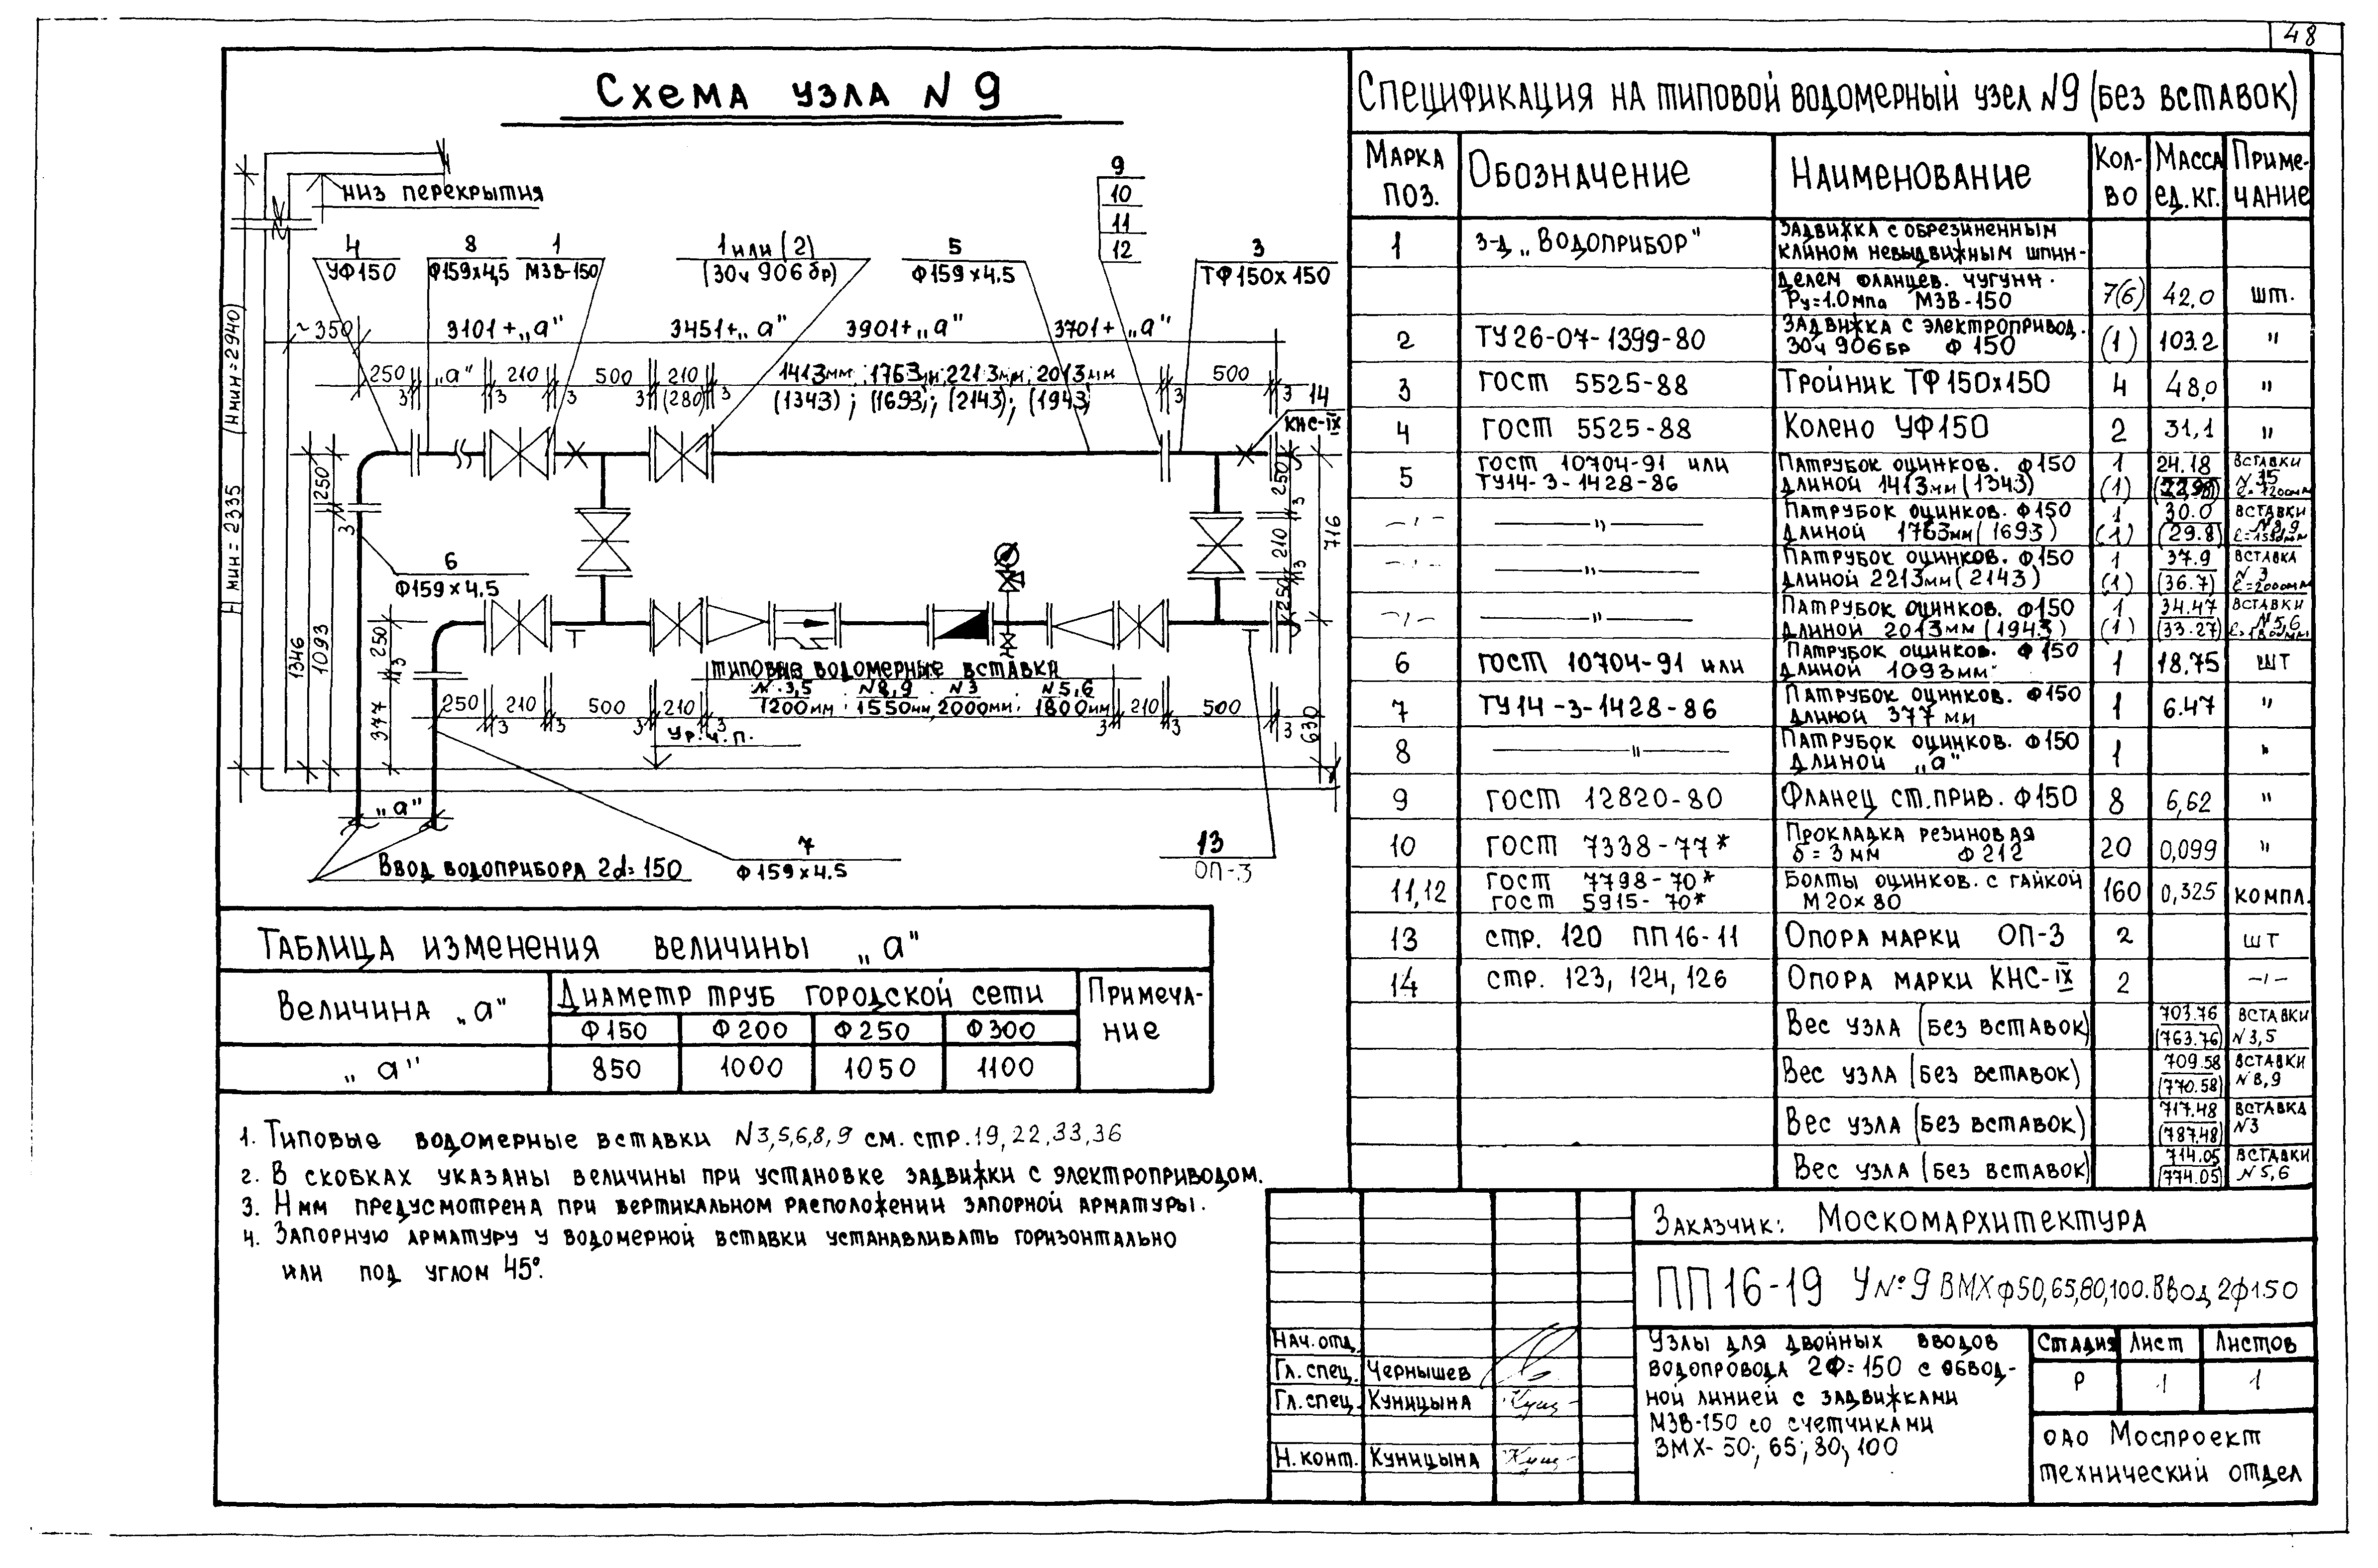 48
Схема узла N 9
низ перекрытия
4
УФ150
8
Ф159х4,5
1
МЗВ-150
1 или (2)
(30ч 906 бр)
5
Ф159х4.5
9
10
11
12
3
ТФ150х150
~350
3101+„а"
3451+„а"
3901+„а"
3701+„а"
250
3
„а"
3
210
3
500
3
210
(280)
3
1413мм; 1763м; 2213мм; 2013мм
(1343); (1693); (2143); (1943)
3
500
3
14
КНС-IX
Hмин=2335 (Hмин=2940)
1346
1093
250
3
6
Ф159х4.5
250
3
377
250
3
210
3
250
716
630
типовые водомерные вставки
N.3,5 N8,9 N3 N5,6
1200мм; 1550мм, 2000мм; 1800мм
250
3
210
3
500
3
210
3
Ур.ч.п.
3
210
3
500
3
„а"
Ввод водоприбора 2d=150
7
Ф159х4.5
13
ОП-3
Таблица изменения величины „а"
Величина „а"
Диаметр труб городской сети
Примеча-
ние
Ф150 Ф200 Ф250 Ф300
„а" 850 1000 1050 1100
1. Типовые водомерные вставки N3,5,6,8,9 см. стр.19,22,33,36
2. В скобках указаны величины при установке задвижки с электроприводом.
3. Нмм предусмотрена при вертикальном расположении запорной арматуры.
4. Запорную арматуру у водомерной вставки устанавливать горизонтально
или под углом 45°.
Спецификация на типовой водомерный узел N9 (без вставок)
Марка поз. Обозначение Наименование Кол-во Масса ед.кг. Приме-чание
1 з-д „Водоприбор" Задвижка с обрезиненным
клином невыдвижным шпин-
делем фланцев. чугунн.
Ру=1.0мпа МЗВ-150 7(6) 42,0 шт.
2 ТУ26-07-1399-80 Задвижка с электропривод.
30ч 906бр Ф 150 (1) 103.2 "
3 ГОСТ 5525-88 Тройник ТФ150х150 4 48,0 "
4 ГОСТ 5525-88 Колено УФ150 2 31,1 "
5 ГОСТ 10704-91 или Патрубок оцинков. Ф150 1 24.18 вставки
ТУ14-3-1428-86 длиной 1413мм(1343) (1)
-ı- " Патрубок оцинков. Ф150 1 30.0 вставки
длиной 1763мм(1693) (1) (29.8) N8,9 ℓ=1550мм
-ı- " Патрубок оцинков. Ф150 1 37.9 вставка
длиной 2213мм(2143) (1) (36.7) N3 ℓ=2000мм
-ı- " Патрубок оцинков. Ф150 1 34.47 вставки
длиной 2013мм(1943) (1) (33.27) N5,6 ℓ=1800мм
6 ГОСТ 10704-91 или Патрубок оцинков. Ф150
длиной 1093мм 1 18.75 шт
7 ТУ14-3-1428-86 Патрубок оцинков. Ф150
длиной 377 мм 1 6.47 "
8 " Патрубок оцинков. Ф150
длиной „а" 1 "
9 ГОСТ 12820-80 Фланец ст.прив. Ф150 8 6,62 "
10 ГОСТ 7338-77* Прокладка резиновая
δ=3мм Ф212 20 0,099 "
11,12 ГОСТ 7798-70* Болты оцинков. с гайкой
ГОСТ 5915-70* М20х80 160 0,325 компл.
13 стр. 120 ПП16-11 Опора марки ОП-3 2 шт
14 стр. 123, 124, 126 Опора марки КНС-IX 2 -ı-
Вес узла (без вставок) 703.76 (763.76) вставки N3,5
Вес узла (без вставок) 709.58 (770.58) вставки N8,9
Вес узла (без вставок) 717.48 (787.48) вставка N3
Вес узла (без вставок) 714.05 (774.05) вставки N5,6
Заказчик: Москомархитектура
ПП16-19 У№9 ВМХφ50,65,80,100. Ввод 2φ150
Нач. отд.
Гл. спец. Чернышев
Гл. спец. Куницына
Н. конт. Куницына
Узлы для двойных вводов
водопровода 2Ф=150 с обвод-
ной линией с задвижками
МЗВ-150 со счетчиками
ВМХ-50; 65; 80; 100
Стадия Лист Листов
Р 1 1
ОАО Моспроект
технический отдел